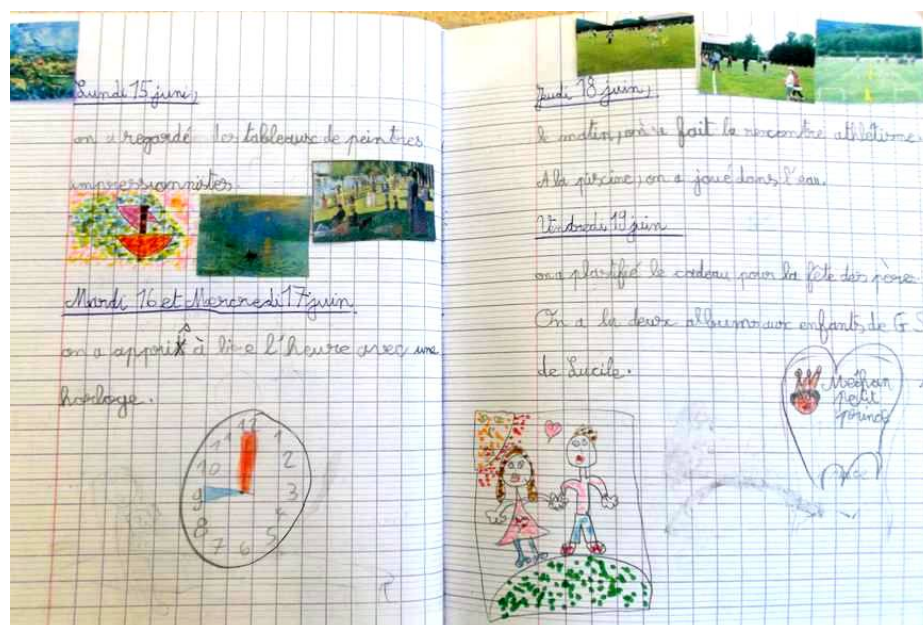 Lundi 15 juin,
on a regardé des tableaux de peintres
impressionnistes.
Mardi 16 et Mercredi 17 juin
on a appris à lire l'heure avec une
horloge.
12
11 1
10 2
9 3
8 4
7 6 5
Jeudi 18 juin,
le matin, on a fait la rencontre athlétisme.
A la piscine, on a joué dans l'eau.
Vendredi 19 juin
on a plastifié le cadeau pour la fête des pères
On a lu deux albums aux enfants de G.S
de Lucile.
petit
prince